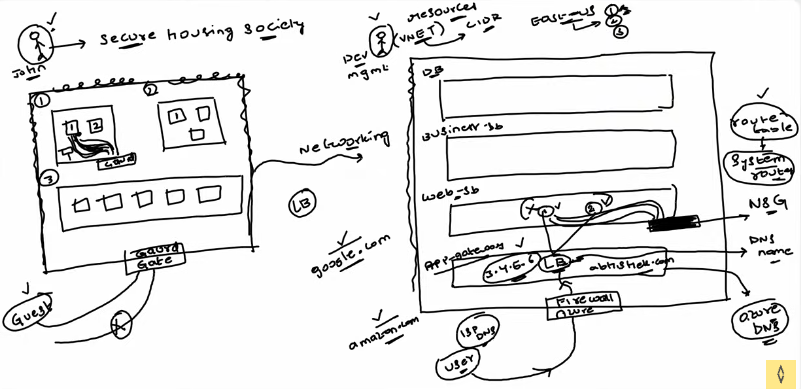 Secure Housing Society
John
1
2
1 2
1
Guard
3
Guard
Gate
Guest
Networking
LB
google.com
amazon.com
Resources
(VNET) CIDR
Dev
mgmt
East-US 1
2
3
DB
Business-sb
Web-sb
App-gateway
3.4.5.6
LB
abhishek.com
Firewall
Azure
ISP
DNS
User
route
table
System
routes
NSG
DNS
name
azure
DNS